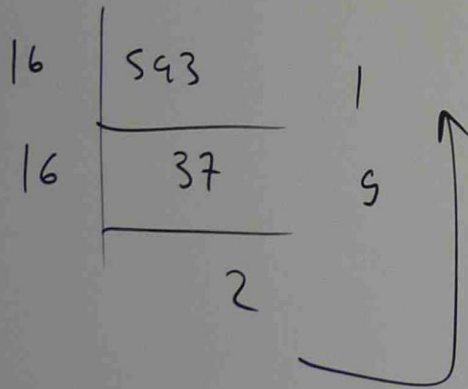 16 593 1
16 37 5
2